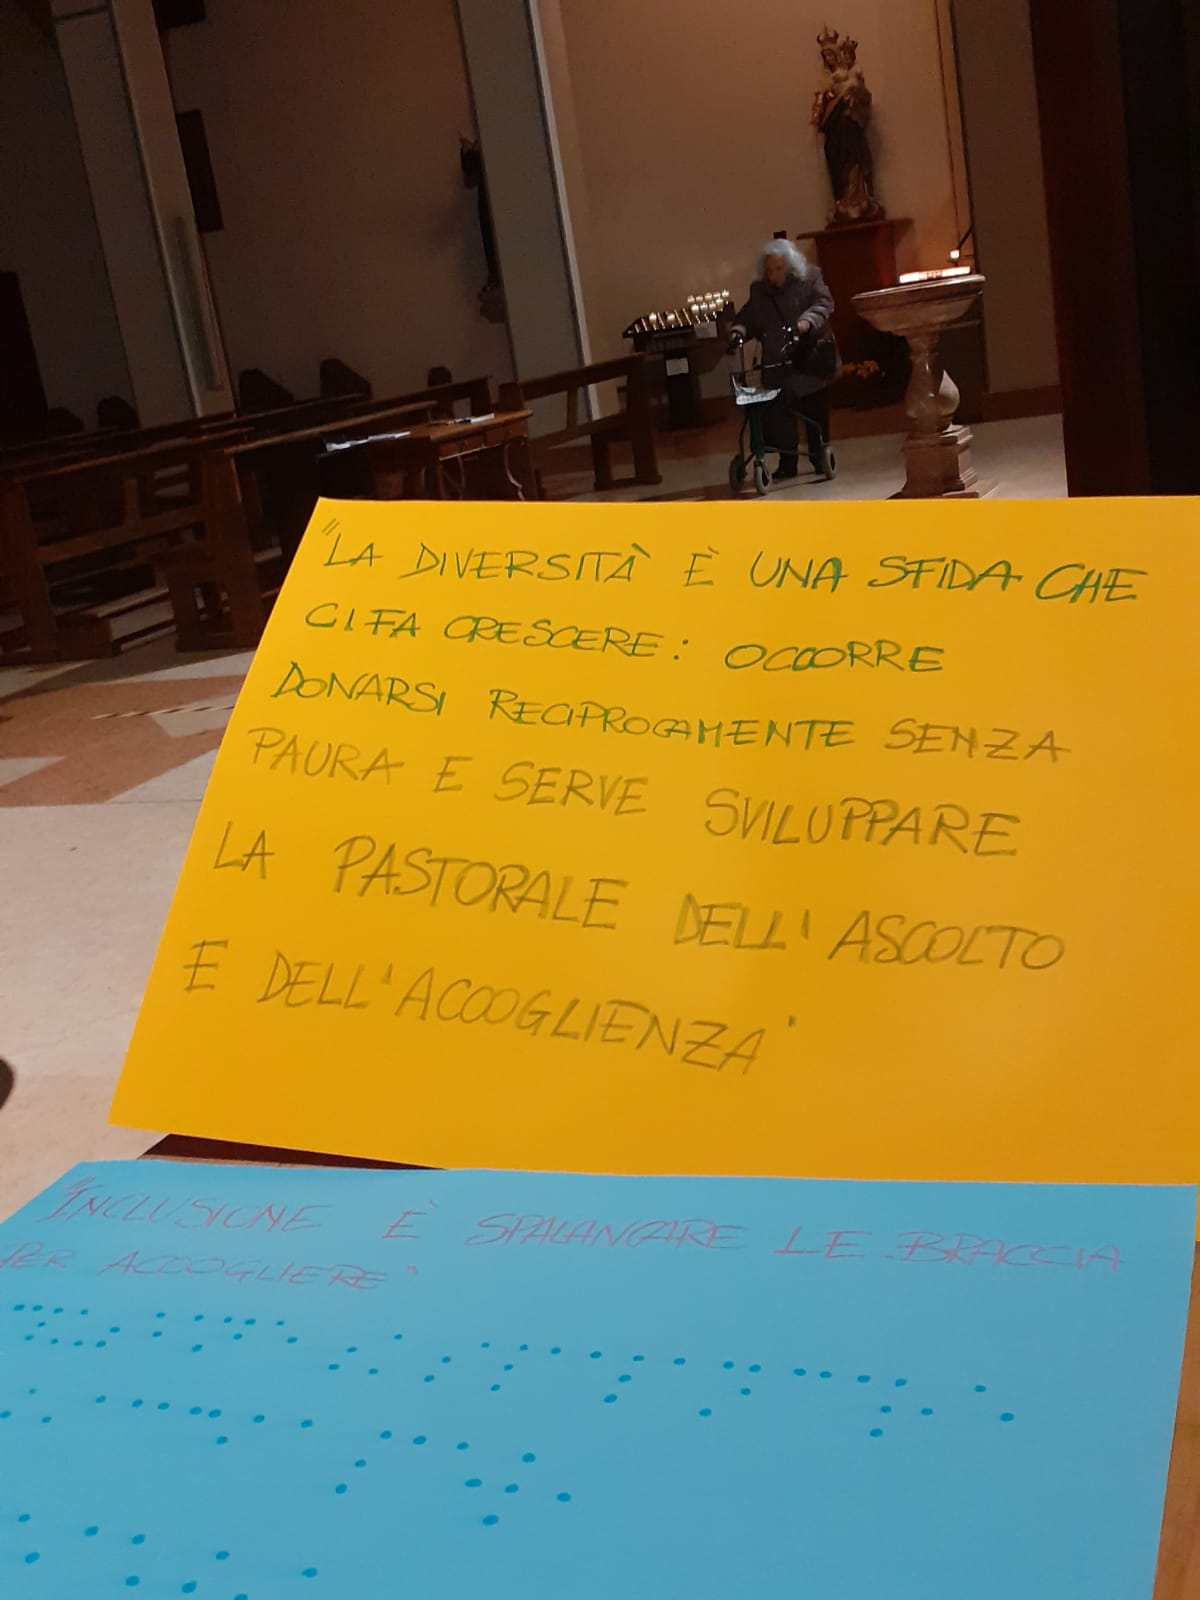 "LA DIVERSITÀ È UNA SFIDA CHE
CI FA CRESCERE: OCCORRE
DONARSI RECIPROCAMENTE SENZA
PAURA E SERVE SVILUPPARE
LA PASTORALE DELL'ASCOLTO
E DELL'ACCOGLIENZA"
"INCLUSIONE È SPALANCARE LE BRACCIA
PER ACCOGLIERE"